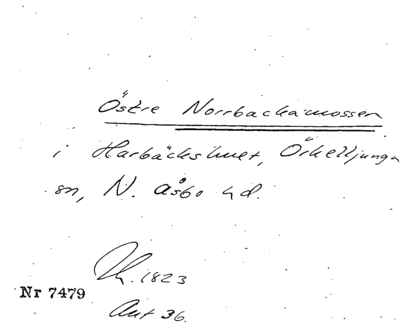 Östre Norrbackamossen
i Harbäckshult, Örkelljunga
sn, N. Åsbo hd.
Th. 1823
Nr 7479
Ant 36.